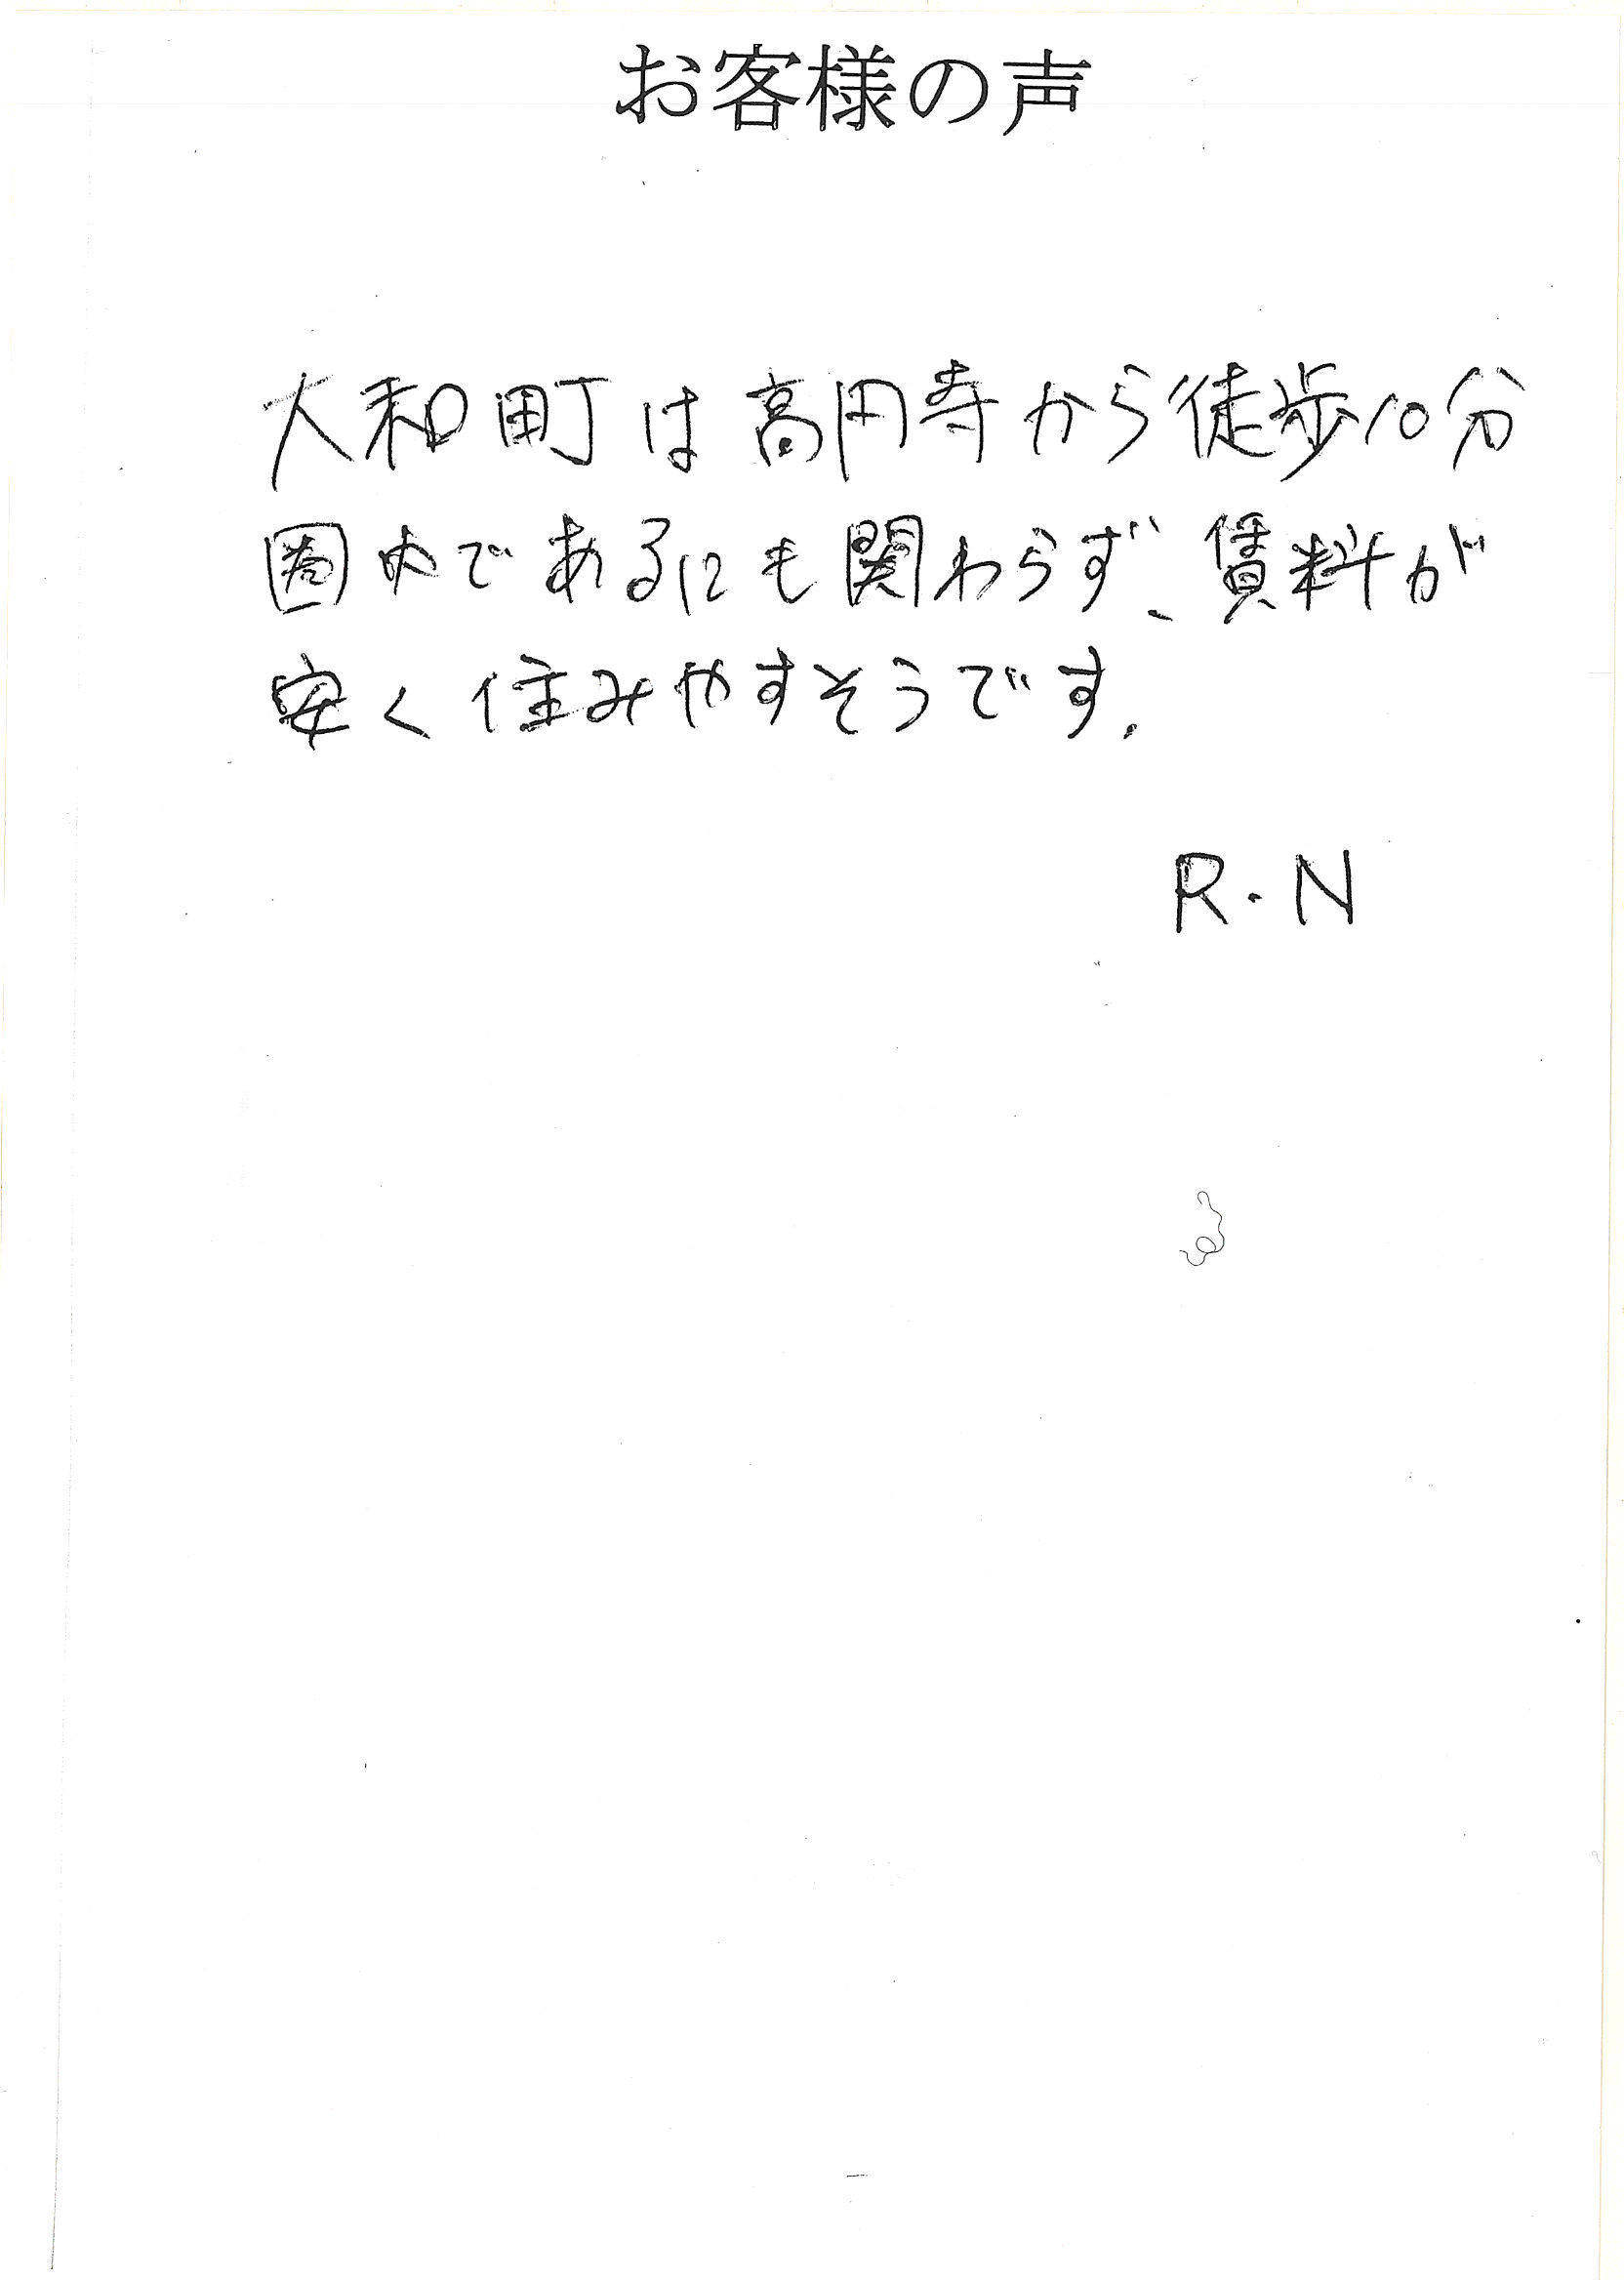 お客様の声
大和町は高円寺から徒歩10分
圏内であるにも関わらず、賃料が
安く住みやすそうです.
R.N